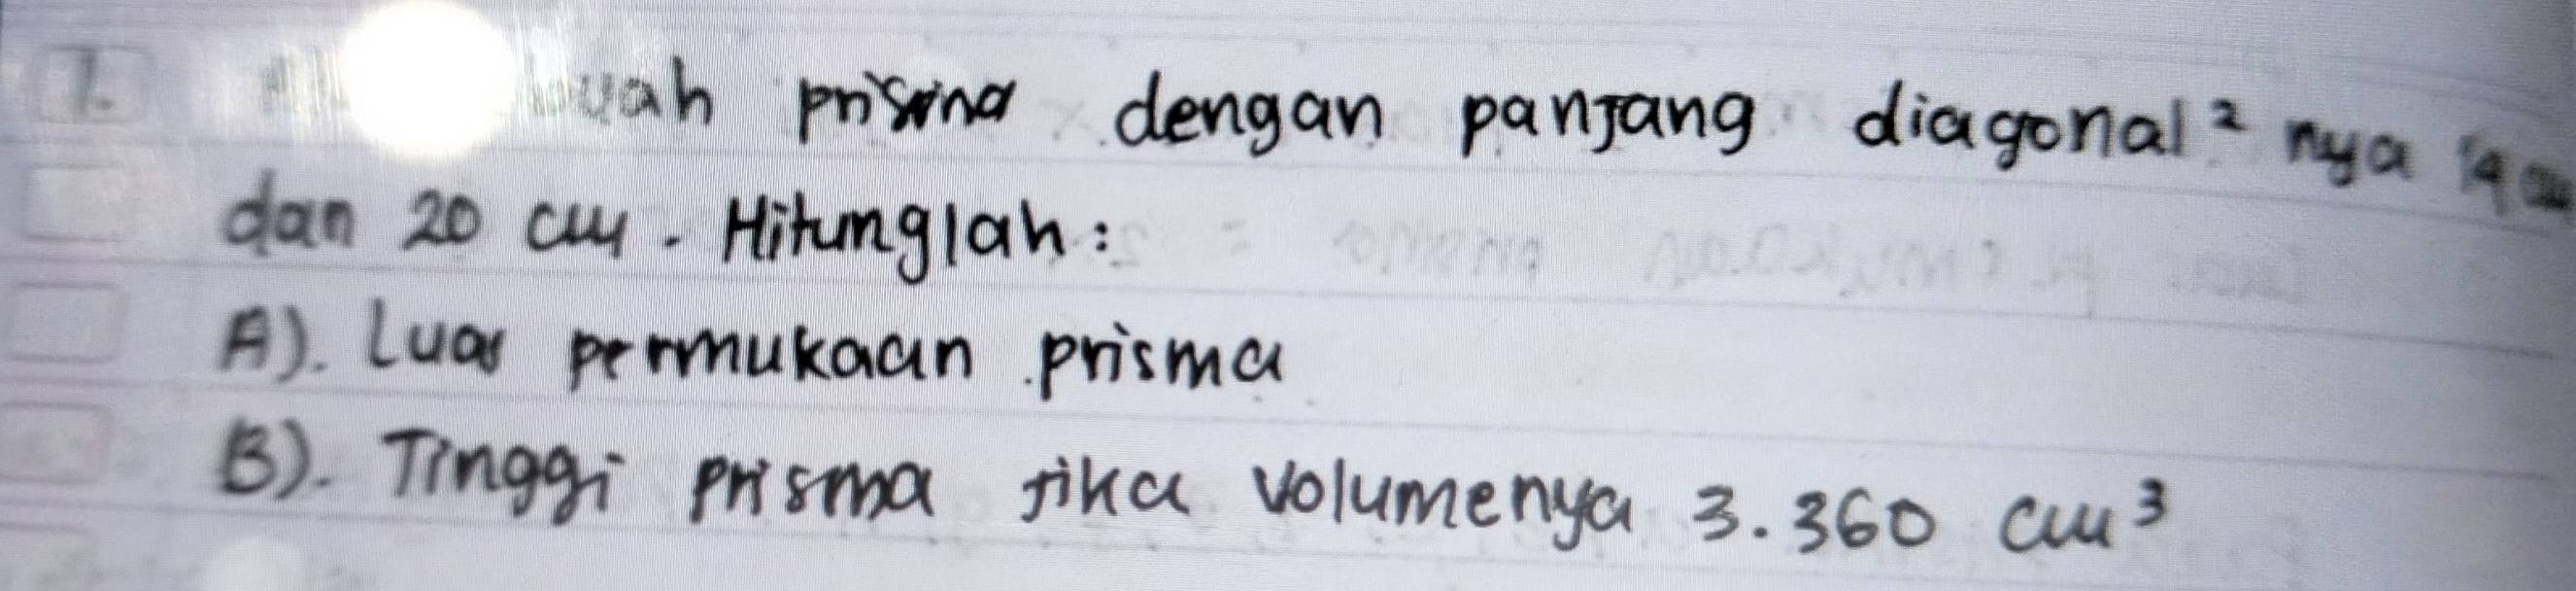 1. buah prisma dengan panjang diagonal² nya
dan 20 cm. Hitunglah:
A). Luas permukaan prisma
B). Tinggi prisma jika volumenya 3.360 cm³